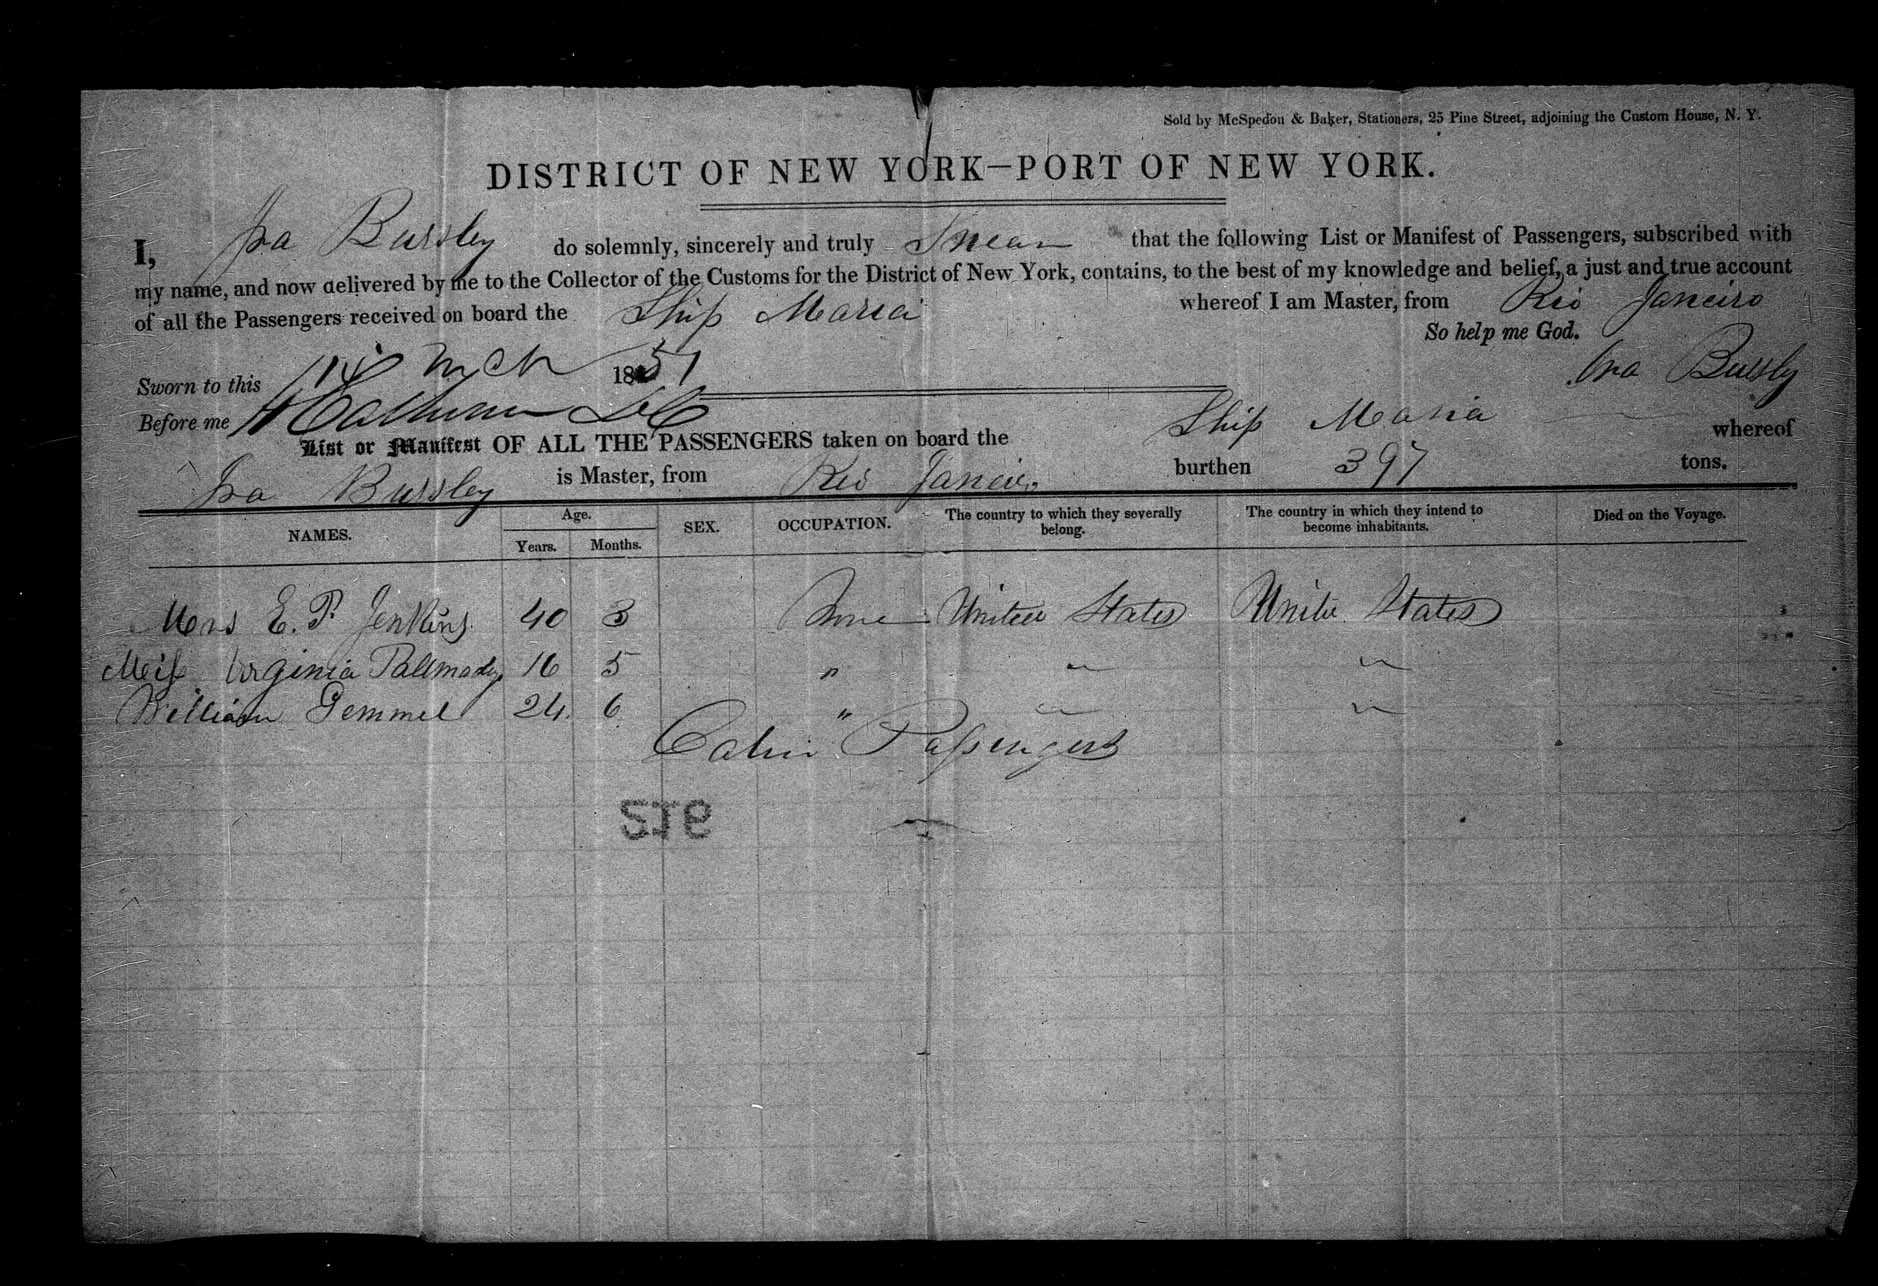 Sold by McSpedon & Baker, Stationers, 25 Pine Street, adjoining the Custom House, N. Y.
DISTRICT OF NEW YORK—PORT OF NEW YORK.
I, Ira Bursley do solemnly, sincerely and truly Swear that the following List or Manifest of Passengers, subscribed with
my name, and now delivered by me to the Collector of the Customs for the District of New York, contains, to the best of my knowledge and belief, a just and true account
of all the Passengers received on board the Ship Maria whereof I am Master, from Rio Janeiro
So help me God.
Sworn to this 14 Mch 1851 Ira Bursley
Before me
List or Manifest OF ALL THE PASSENGERS taken on board the Ship Maria whereof
Ira Bursley is Master, from Rio Janeiro burthen 397 tons.
NAMES. Age. Years. Months. SEX. OCCUPATION. The country to which they severally belong. The country in which they intend to become inhabitants. Died on the Voyage.
Mrs E. P. Jenkins 40 3 None United States United States
Miss Virginia 16 5 " " "
William Gemmel 24 6 " " "
Cabin Passengers
216